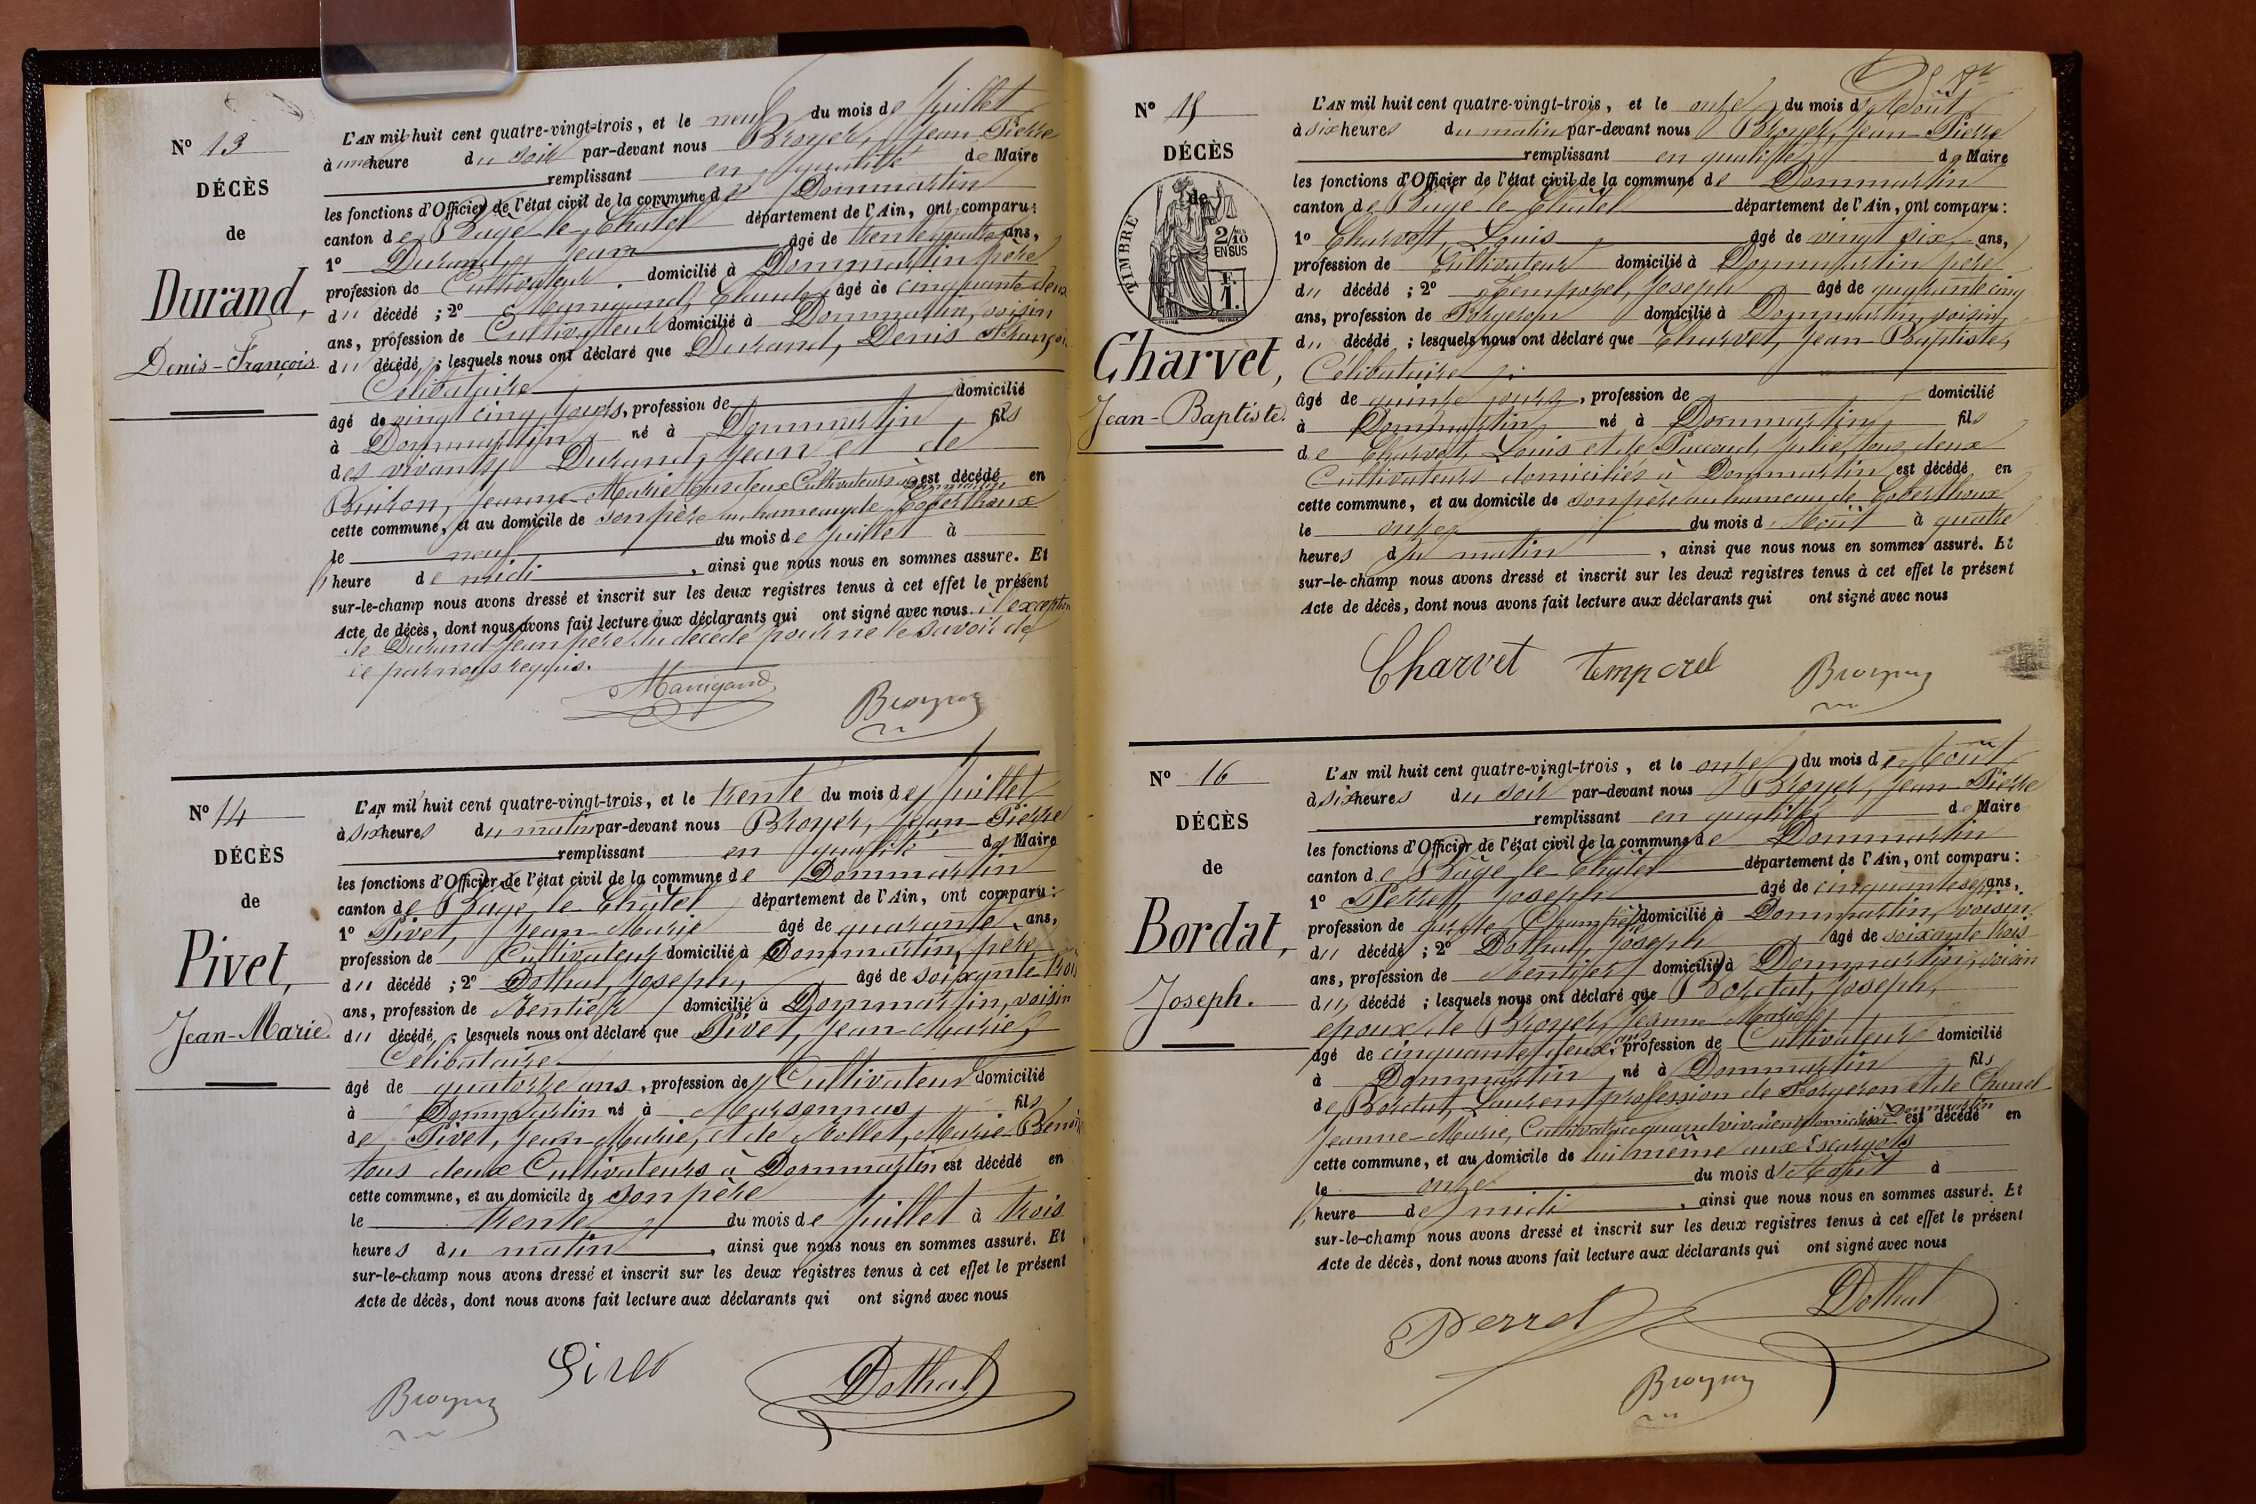 N° 13
DÉCÈS
de
Durand,
Denis-François
L'AN mil huit cent quatre-vingt-trois, et le neuf du mois de Juillet
à une heure du soir par-devant nous Broyer, Jean Pierre
remplissant en qualité de Maire
les fonctions d'Officier de l'état civil de la commune de Dommartin
canton de Bâgé le Châtel département de l'Ain, ont comparu:
1° Durand, Jean âgé de trente quatre ans,
profession de Cultivateur domicilié à Dommartin père
du décédé ; 2° Claude âgé de cinquante deux
ans, profession de Cultivateur domicilié à Dommartin, voisin
du décédé ; lesquels nous ont déclaré que Durand, Denis François
Célibataire
âgé de vingt cinq jours, profession de domicilié
à Dommartin né à Dommartin fils
des vivants Durand, Jean et de
Buiron, Jeanne-Marie tous deux Cultivateurs à Dommartin est décédé en
cette commune, et au domicile de son père au hameau de Coberthoux
le neuf du mois de Juillet à
heure de midi, ainsi que nous nous en sommes assuré. Et
sur-le-champ nous avons dressé et inscrit sur les deux registres tenus à cet effet le présent
Acte de décès, dont nous avons fait lecture aux déclarants qui ont signé avec nous à l'exception
de Durand Jean père du décédé pour ne le savoir de
ce par nous requis.
Manigand Broyer
N° 14
DÉCÈS
de
Pivet,
Jean-Marie.
L'AN mil huit cent quatre-vingt-trois, et le trente du mois de Juillet
à six heures du matin par-devant nous Broyer, Jean-Pierre
remplissant en qualité de Maire
les fonctions d'Officier de l'état civil de la commune de Dommartin
canton de Bâgé le Châtel département de l'Ain, ont comparu:
1° Pivet, Jean Marie âgé de quarante ans,
profession de Cultivateur domicilié à Dommartin, père
du décédé ; 2° Dothal, Joseph, âgé de soixante trois
ans, profession de Rentier domicilié à Dommartin, voisin
du décédé ; lesquels nous ont déclaré que Pivet, Jean-Marie,
Célibataire
âgé de quatorze ans, profession de Cultivateur domicilié
à Dommartin né à Marsonnas fils
de Pivet, Jean-Marie, et de Mollet, Marie-Benoite
tous deux Cultivateurs à Dommartin est décédé en
cette commune, et au domicile de son père
le trente du mois de Juillet à trois
heures du matin, ainsi que nous nous en sommes assuré. Et
sur-le-champ nous avons dressé et inscrit sur les deux registres tenus à cet effet le présent
Acte de décès, dont nous avons fait lecture aux déclarants qui ont signé avec nous
Broyer Dothal
N° 15
DÉCÈS
de
TIMBRE
2/10
EN SUS
Charvet,
Jean-Baptiste.
L'AN mil huit cent quatre-vingt-trois, et le onze du mois d'Août
à six heures du matin par-devant nous Broyer, Jean-Pierre
remplissant en qualité de Maire
les fonctions d'Officier de l'état civil de la commune de Dommartin
canton de Bâgé le Châtel département de l'Ain, ont comparu:
1° Charvet, Louis âgé de vingt six ans,
profession de Cultivateur domicilié à Dommartin père
du décédé ; 2° Temporel, Joseph âgé de quarante cinq
ans, profession de Forgeron domicilié à Dommartin, voisin
du décédé ; lesquels nous ont déclaré que Charvet, Jean-Baptiste,
Célibataire
âgé de quinze jours, profession de domicilié
à Dommartin né à Dommartin fils
de Charvet Louis et de Julie, tous deux
Cultivateurs domiciliés à Dommartin est décédé en
cette commune, et au domicile de son père au hameau de Coberthoux
le onze du mois d'Août à quatre
heures du matin, ainsi que nous nous en sommes assuré. Et
sur-le-champ nous avons dressé et inscrit sur les deux registres tenus à cet effet le présent
Acte de décès, dont nous avons fait lecture aux déclarants qui ont signé avec nous
Charvet temporel Broyer
N° 16
DÉCÈS
de
Bordat,
Joseph.
L'AN mil huit cent quatre-vingt-trois, et le onze du mois d'Août
à six heures du soir par-devant nous Broyer, Jean-Pierre
remplissant en qualité de Maire
les fonctions d'Officier de l'état civil de la commune de Dommartin
canton de Bâgé le Châtel département de l'Ain, ont comparu:
1° Perret, Joseph âgé de cinquante sept ans,
profession de garde Champêtre domicilié à Dommartin, voisin
du décédé ; 2° Dothal, Joseph âgé de soixante trois
ans, profession de Rentier domicilié à Dommartin, voisin
du décédé ; lesquels nous ont déclaré que Bordat, Joseph,
époux de Broyer, Jeanne Marie
âgé de cinquante deux ans, profession de Cultivateur domicilié
à Dommartin né à Dommartin fils
de Bordat, Laurent profession de Forgeron et de Chanel
Jeanne-Marie, Cultivatrice quand vivaient domiciliés Dommartin est décédé en
cette commune, et au domicile de lui même aux Escargots
le onze du mois d'Août à
heure de midi, ainsi que nous nous en sommes assuré. Et
sur-le-champ nous avons dressé et inscrit sur les deux registres tenus à cet effet le présent
Acte de décès, dont nous avons fait lecture aux déclarants qui ont signé avec nous
Perret Dothal
Broyer